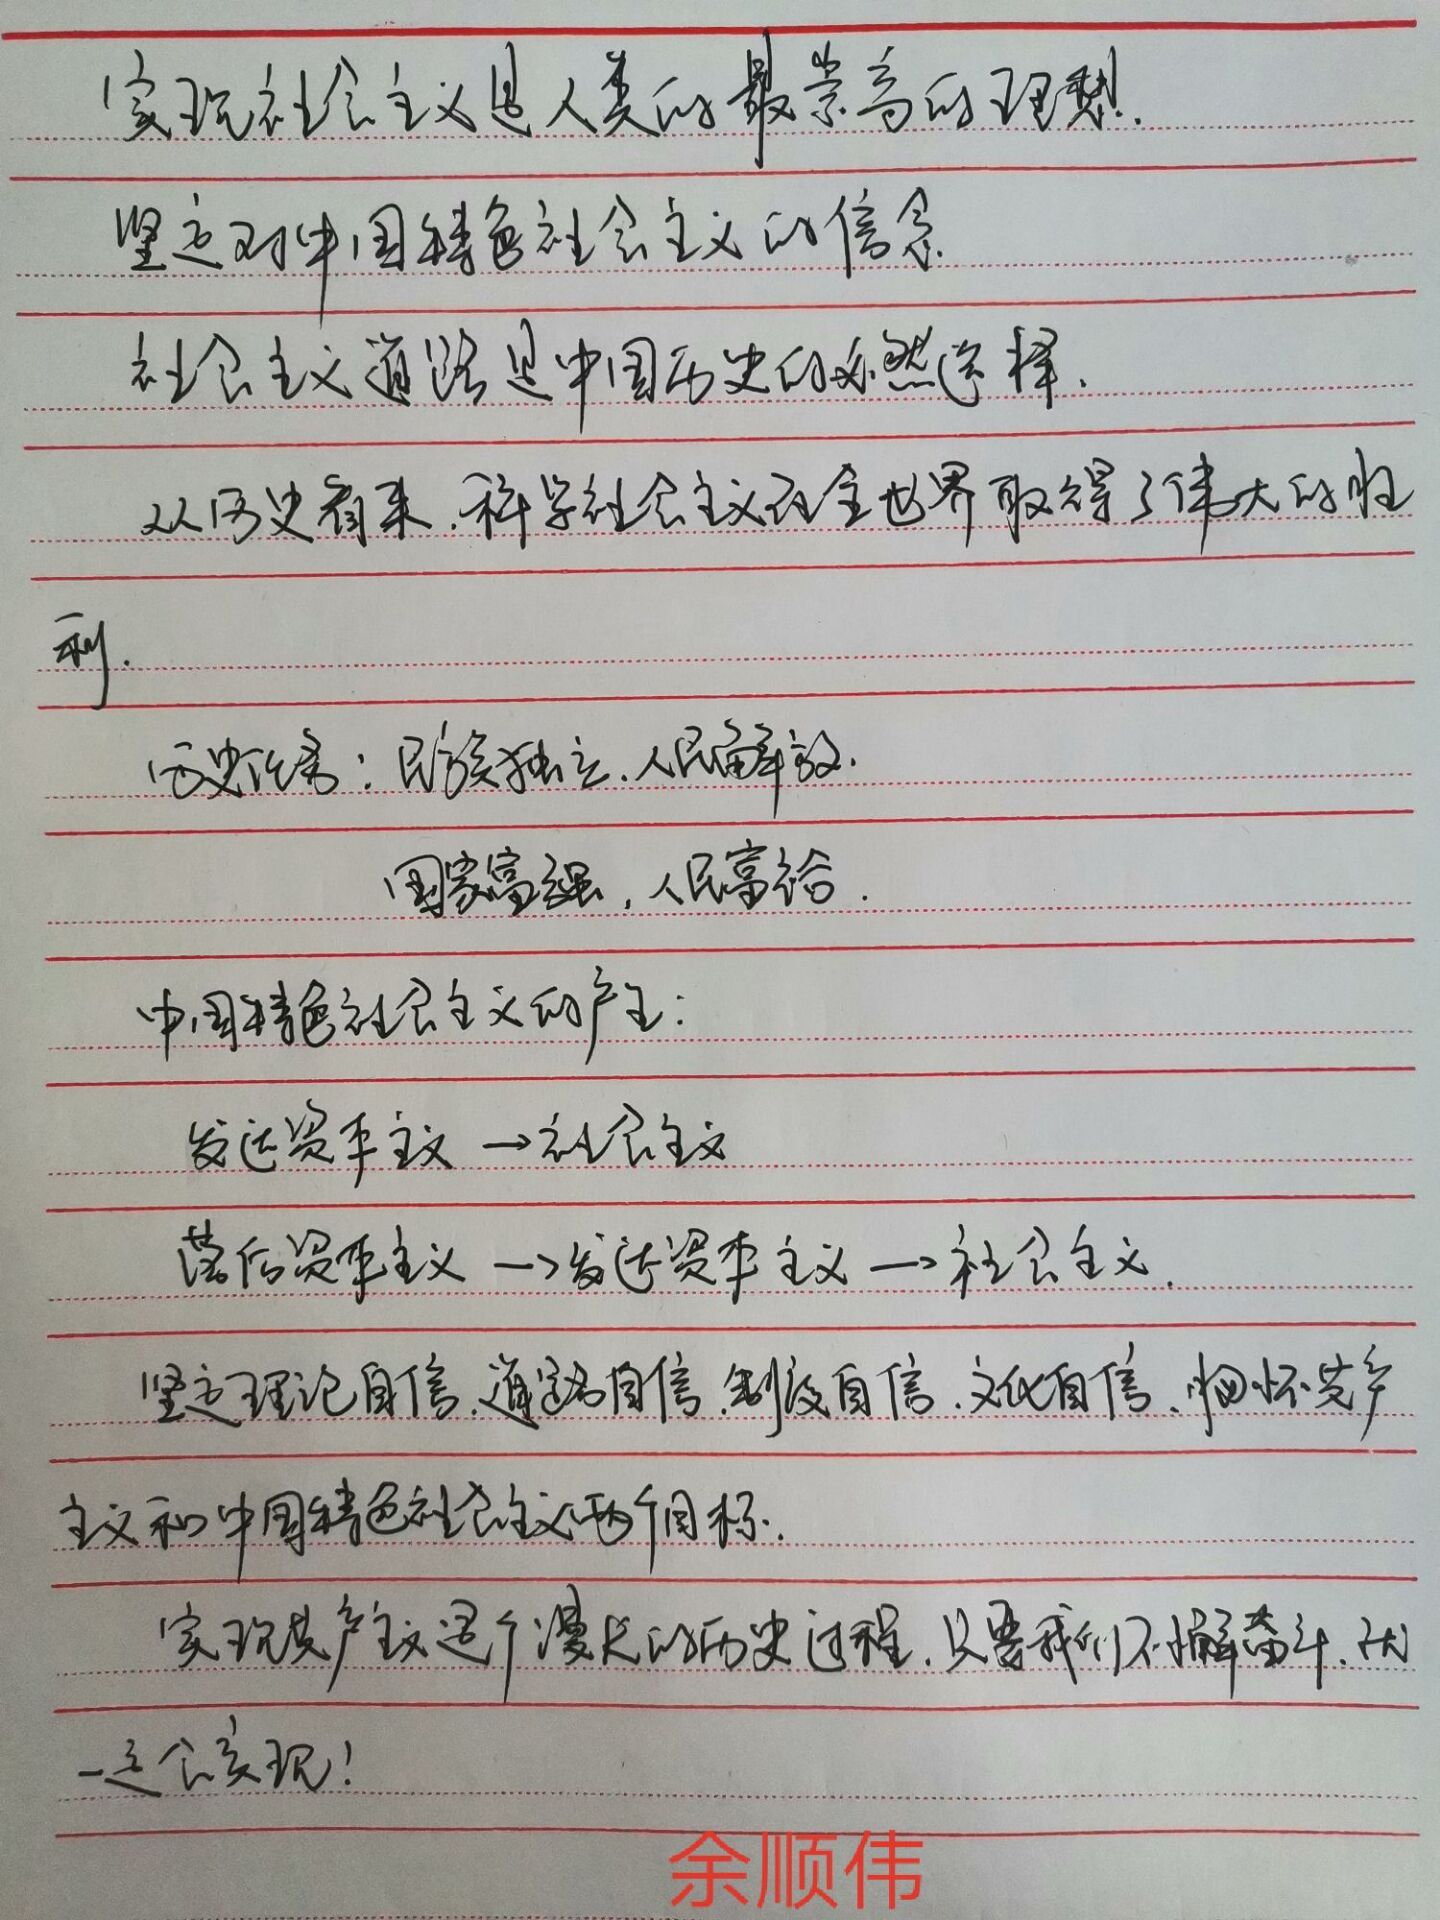 实现社会主义是人类的最崇高的理想.
坚定对中国特色社会主义的信念.
社会主义道路是中国历史的必然选择.
从历史看来.科学社会主义在全世界取得了伟大的胜
利.
历史任务：民族独立.人民解放.
国家富强，人民富裕.
中国特色社会主义的产生：
发达资本主义→社会主义
落后资本主义→发达资本主义→社会主义.
坚定理论自信.道路自信.制度自信.文化自信.怀共产
主义和中国特色社会主义两个目标.
实现共产主义是个漫长的历史过程.只要我们不懈奋斗.就
一定会实现！
余顺伟